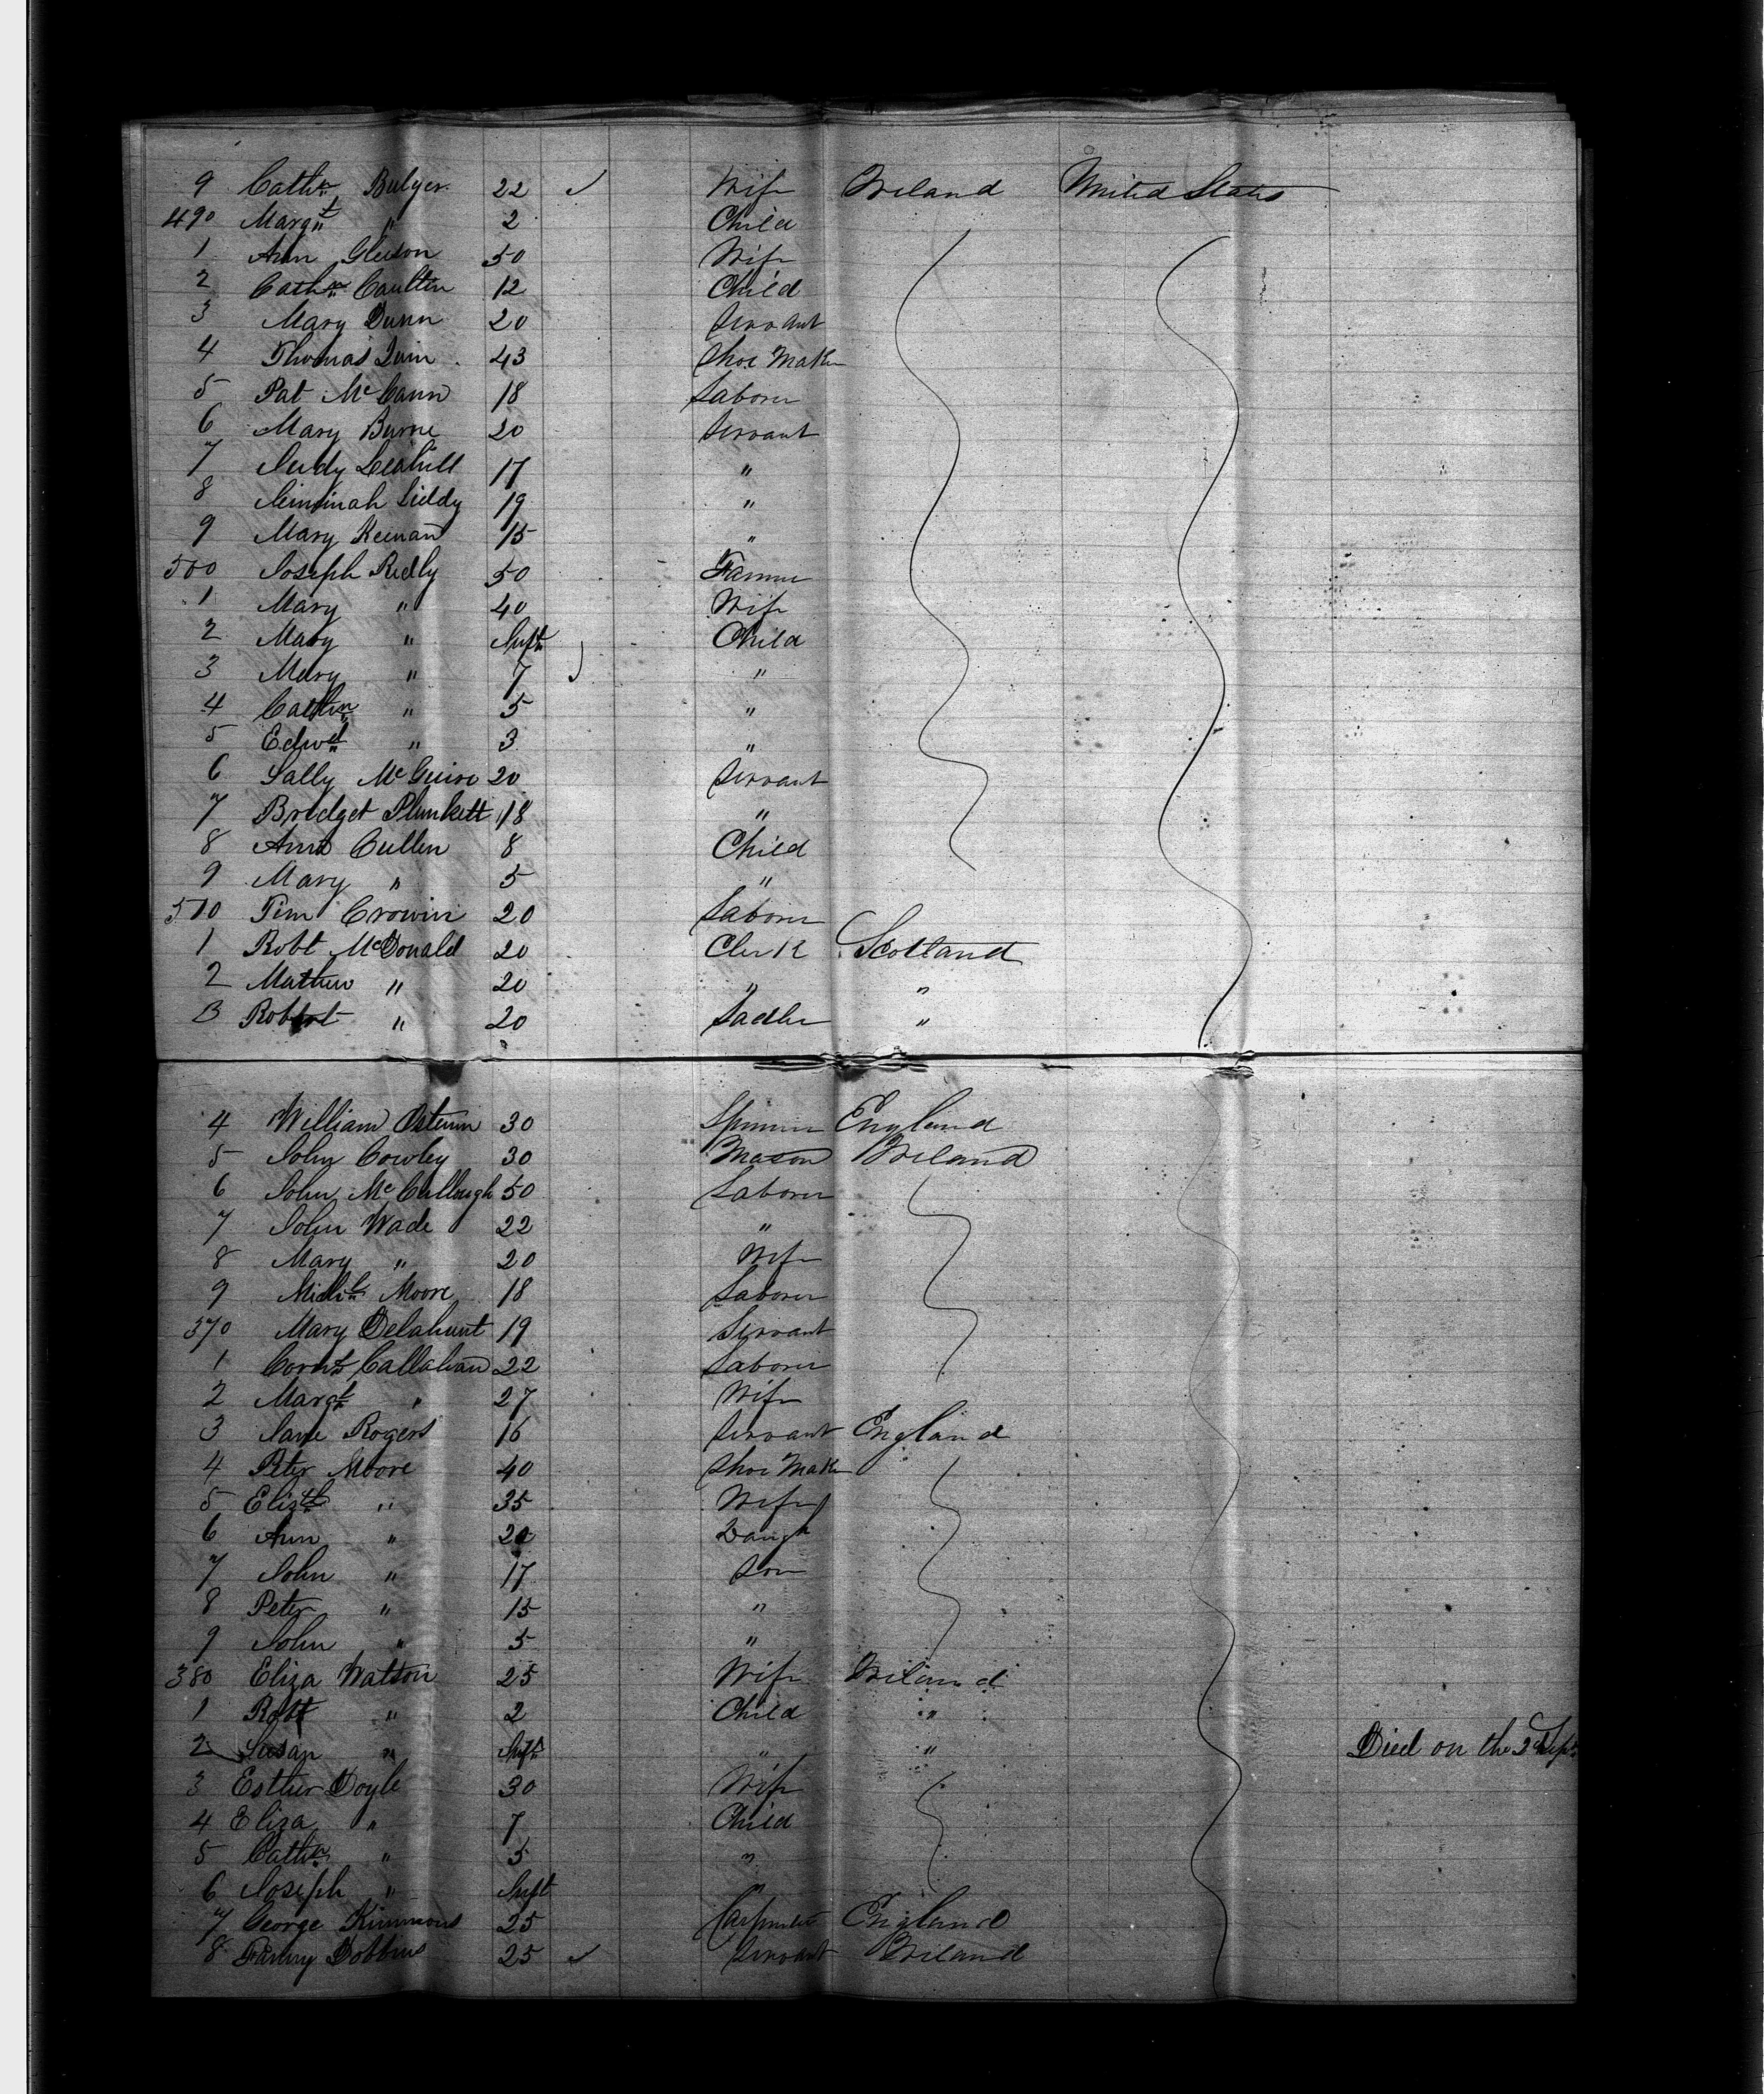 9 Cath.n Bulger 22 ✓ Wife Ireland United States
490 Marg.t " 2 Child
1 Ann Gleeson 50 Wife
2 Cath.n Caulten 12 Child
3 Mary Dunn 20 Servant
4 Thomas Quin 43 Shoe Maker
5 Pat McCann 18 Laborer
6 Mary Burne 20 Servant
7 Judy 17 "
8 Liddy 19 "
9 Mary Keenan 15 "
500 Joseph Reilly 50 Farmer
1 Mary " 40 Wife
2 Mary " Inft Child
3 Mary " 7 "
4 Cathn " 5 "
5 Edwd " 3 "
6 Sally McGuire 20 Servant
7 Bridget Plunkett 18 "
8 Ann Cullen 8 Child
9 Mary " 5 "
510 Tim Crowin 20 Laborer
1 Robt McDonald 20 Clerk Scotland
2 Mathew " 20 " "
3 Robert " 20 Sadler "
4 William 30 Spinner England
5 John Cowley 30 Mason Ireland
6 John McCullough 50 Laborer
7 John Wade 22 "
8 Mary " 20 Wife
9 Michl Moore 18 Laborer
370 Mary Delahunt 19 Servant
1 Corns Callahan 22 Laborer
2 Margt " 27 Wife
3 Jane Rogers 16 Servant England
4 Peter Moore 40 Shoe Maker
5 Elizth " 35 Wife
6 Ann " 20 Daugh
7 John " 17 Son
8 Peter " 15 "
9 John " 5 "
380 Eliza Watson 25 Wife Ireland
1 Robt " 2 Child "
2 Susan " Inft " " Died on the 2d Sept
3 Esther Doyle 30 Wife
4 Eliza " 7 Child
5 Cathn " 5 "
6 Joseph " Inft "
7 George Kimmons 25 Carpenter England
8 Fanny Dobbins 25 ✓ Servant Ireland